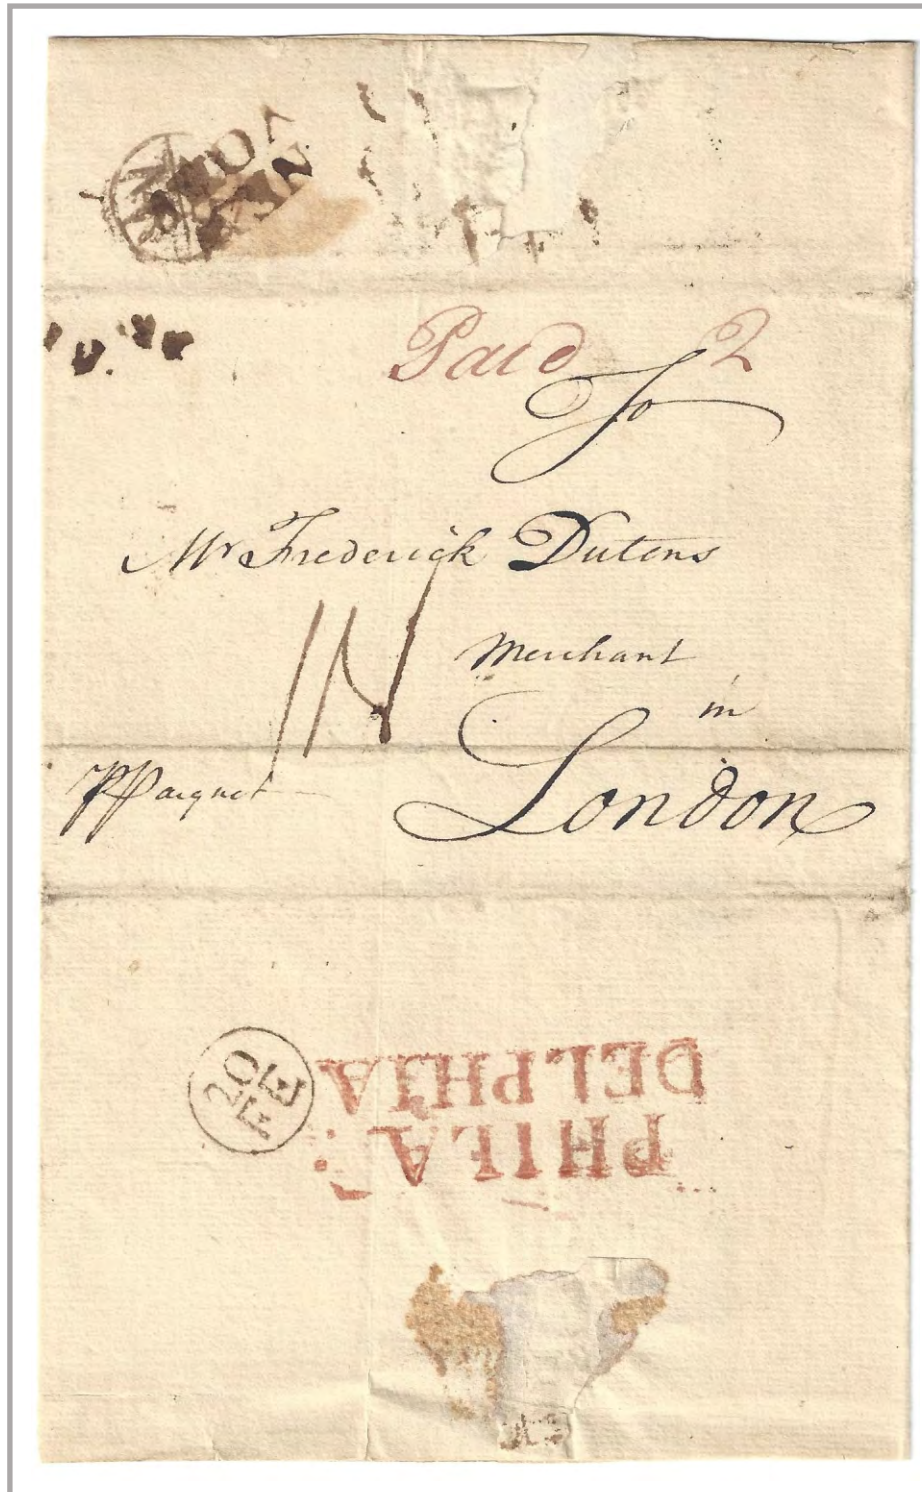 NEW
YORK
Paid 2
To
Mr Frederick Dutens
Merchant
in
London
P Pacquet
20
FE
PHILA
DELPHIA